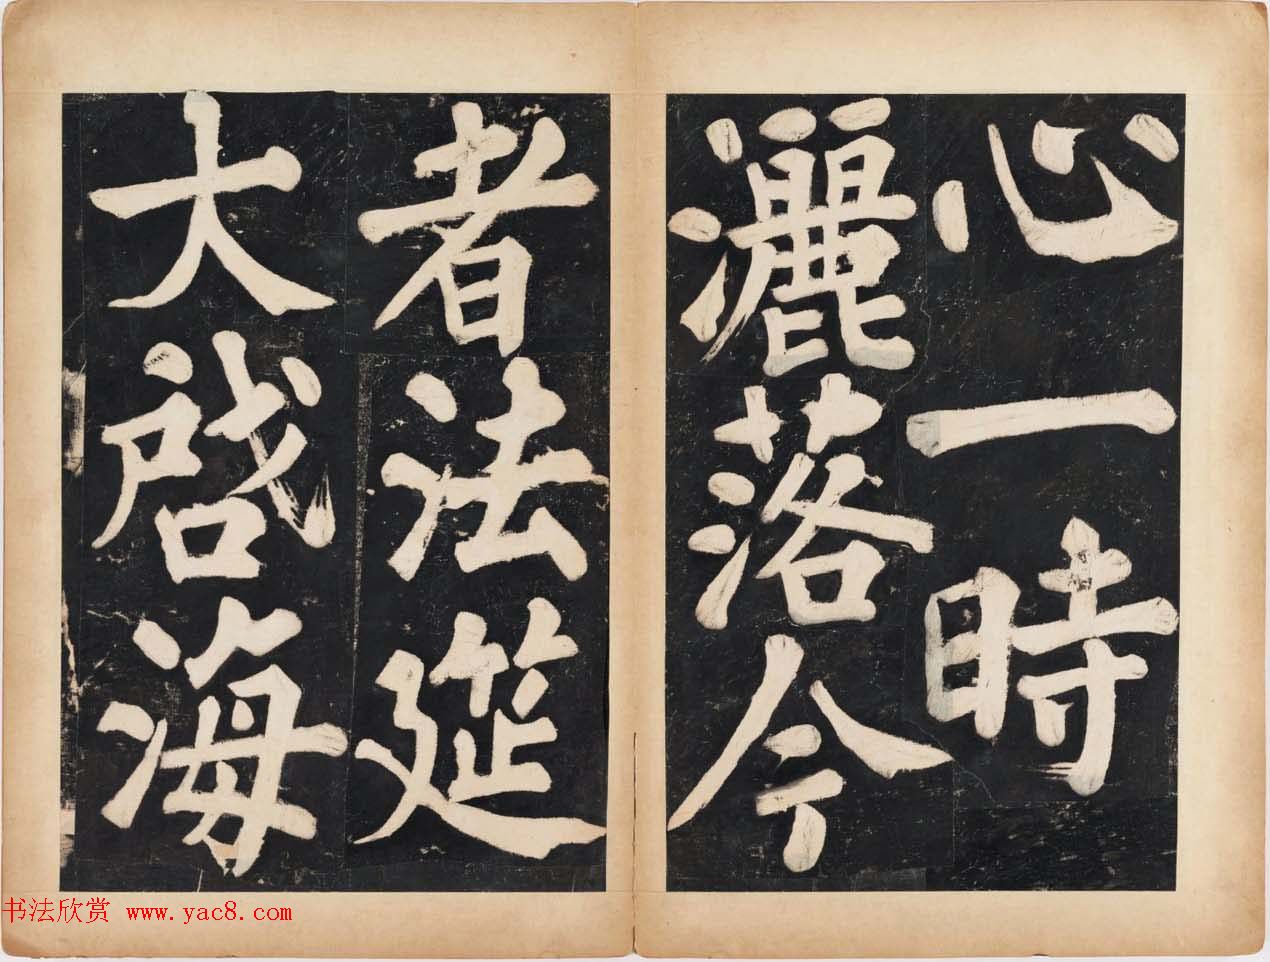 心一時
灑落今
者法筵
大啓海
书法欣赏 www.yac8.com